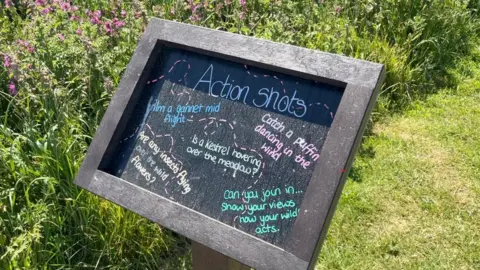 Action shots
Film a gannet mid
flight
Catch a puffin
dancing in the
wind
Is a kestrel hovering
over the meadow?
Are any insects flying
the wild
flowers?
Can you join in...
Show your views
'how your wild'
acts.